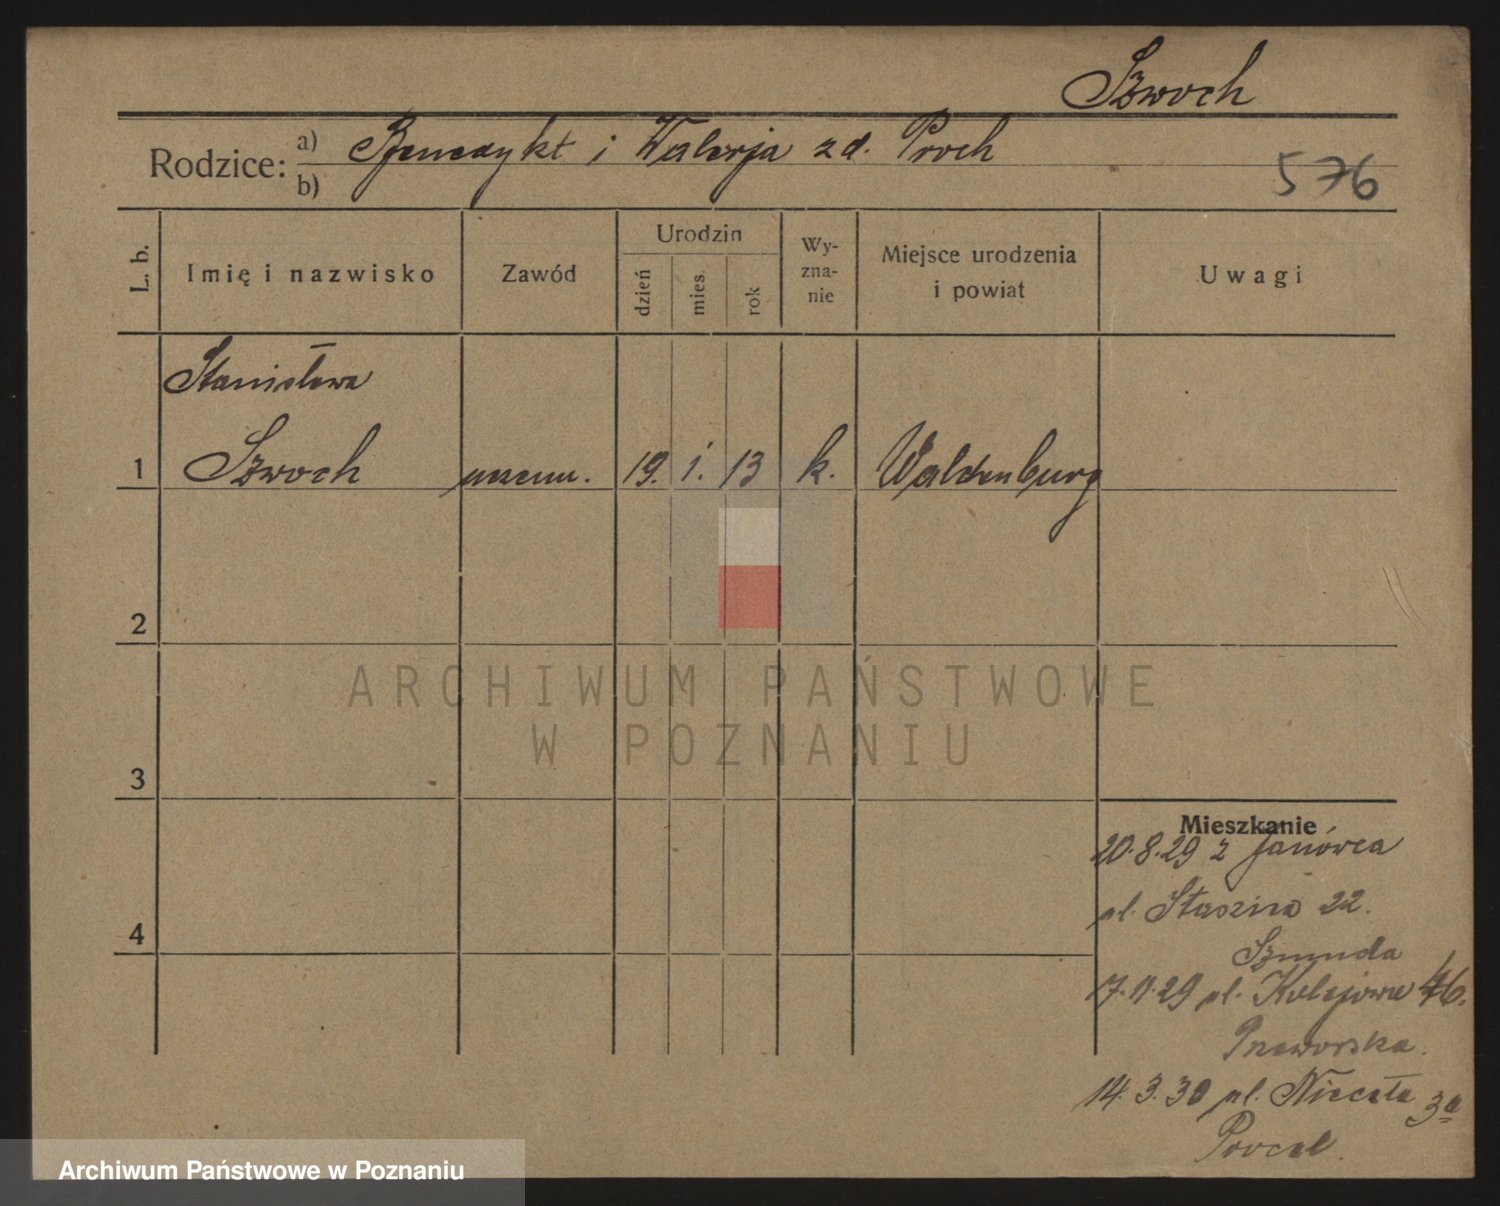 Szwoch
Rodzice: a) Benedykt i Walerja zd. Proch
b)
576
L. b.
Imię i nazwisko
Zawód
Urodzin
dzień
mies.
rok
Wy-
zna-
nie
Miejsce urodzenia
i powiat
Uwagi
Stanisława
1 Szwoch uczenn. 19. 1. 13 k. Waldenburg
2
3
4
Mieszkanie
20.8.29 z Janówca
ul. Staszica 22.
Szmuda
17.11.29 ul. Kolejowa 46.
Przeworska.
14.3.30 ul. Niecała 3a
ARCHIWUM PAŃSTWOWE
W POZNANIU
Archiwum Państwowe w Poznaniu